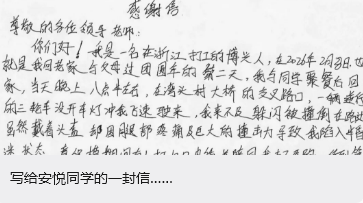 感谢信
尊敬的各位领导老师：
你们好！我是一名在浙江打工的博兴人，在2026年2月3日也
就是我回老家与父母过团圆年的第二天，我与同学聚餐后回
家，当天晚上八点半左右，在湾头村大桥的交叉路口，一辆逆行
的三轮车没开车灯冲我飞速驶来，我来不及躲闪被撞倒在路边
虽然戴着头盔 却因腿部疼痛及巨大的撞击力导致我陷入半昏
迷状态
写给安悦同学的一封信……